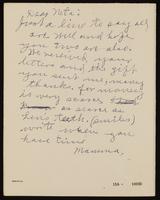 Dear Neta:
Just a line to say all
are well and hope
you two are also.
We received your
letters and the gift
you sent us, many
thanks, for money
is very scarce
as scarce as
hens teeth. (smiles)
write when you
have time
Mamma,
15A 10030